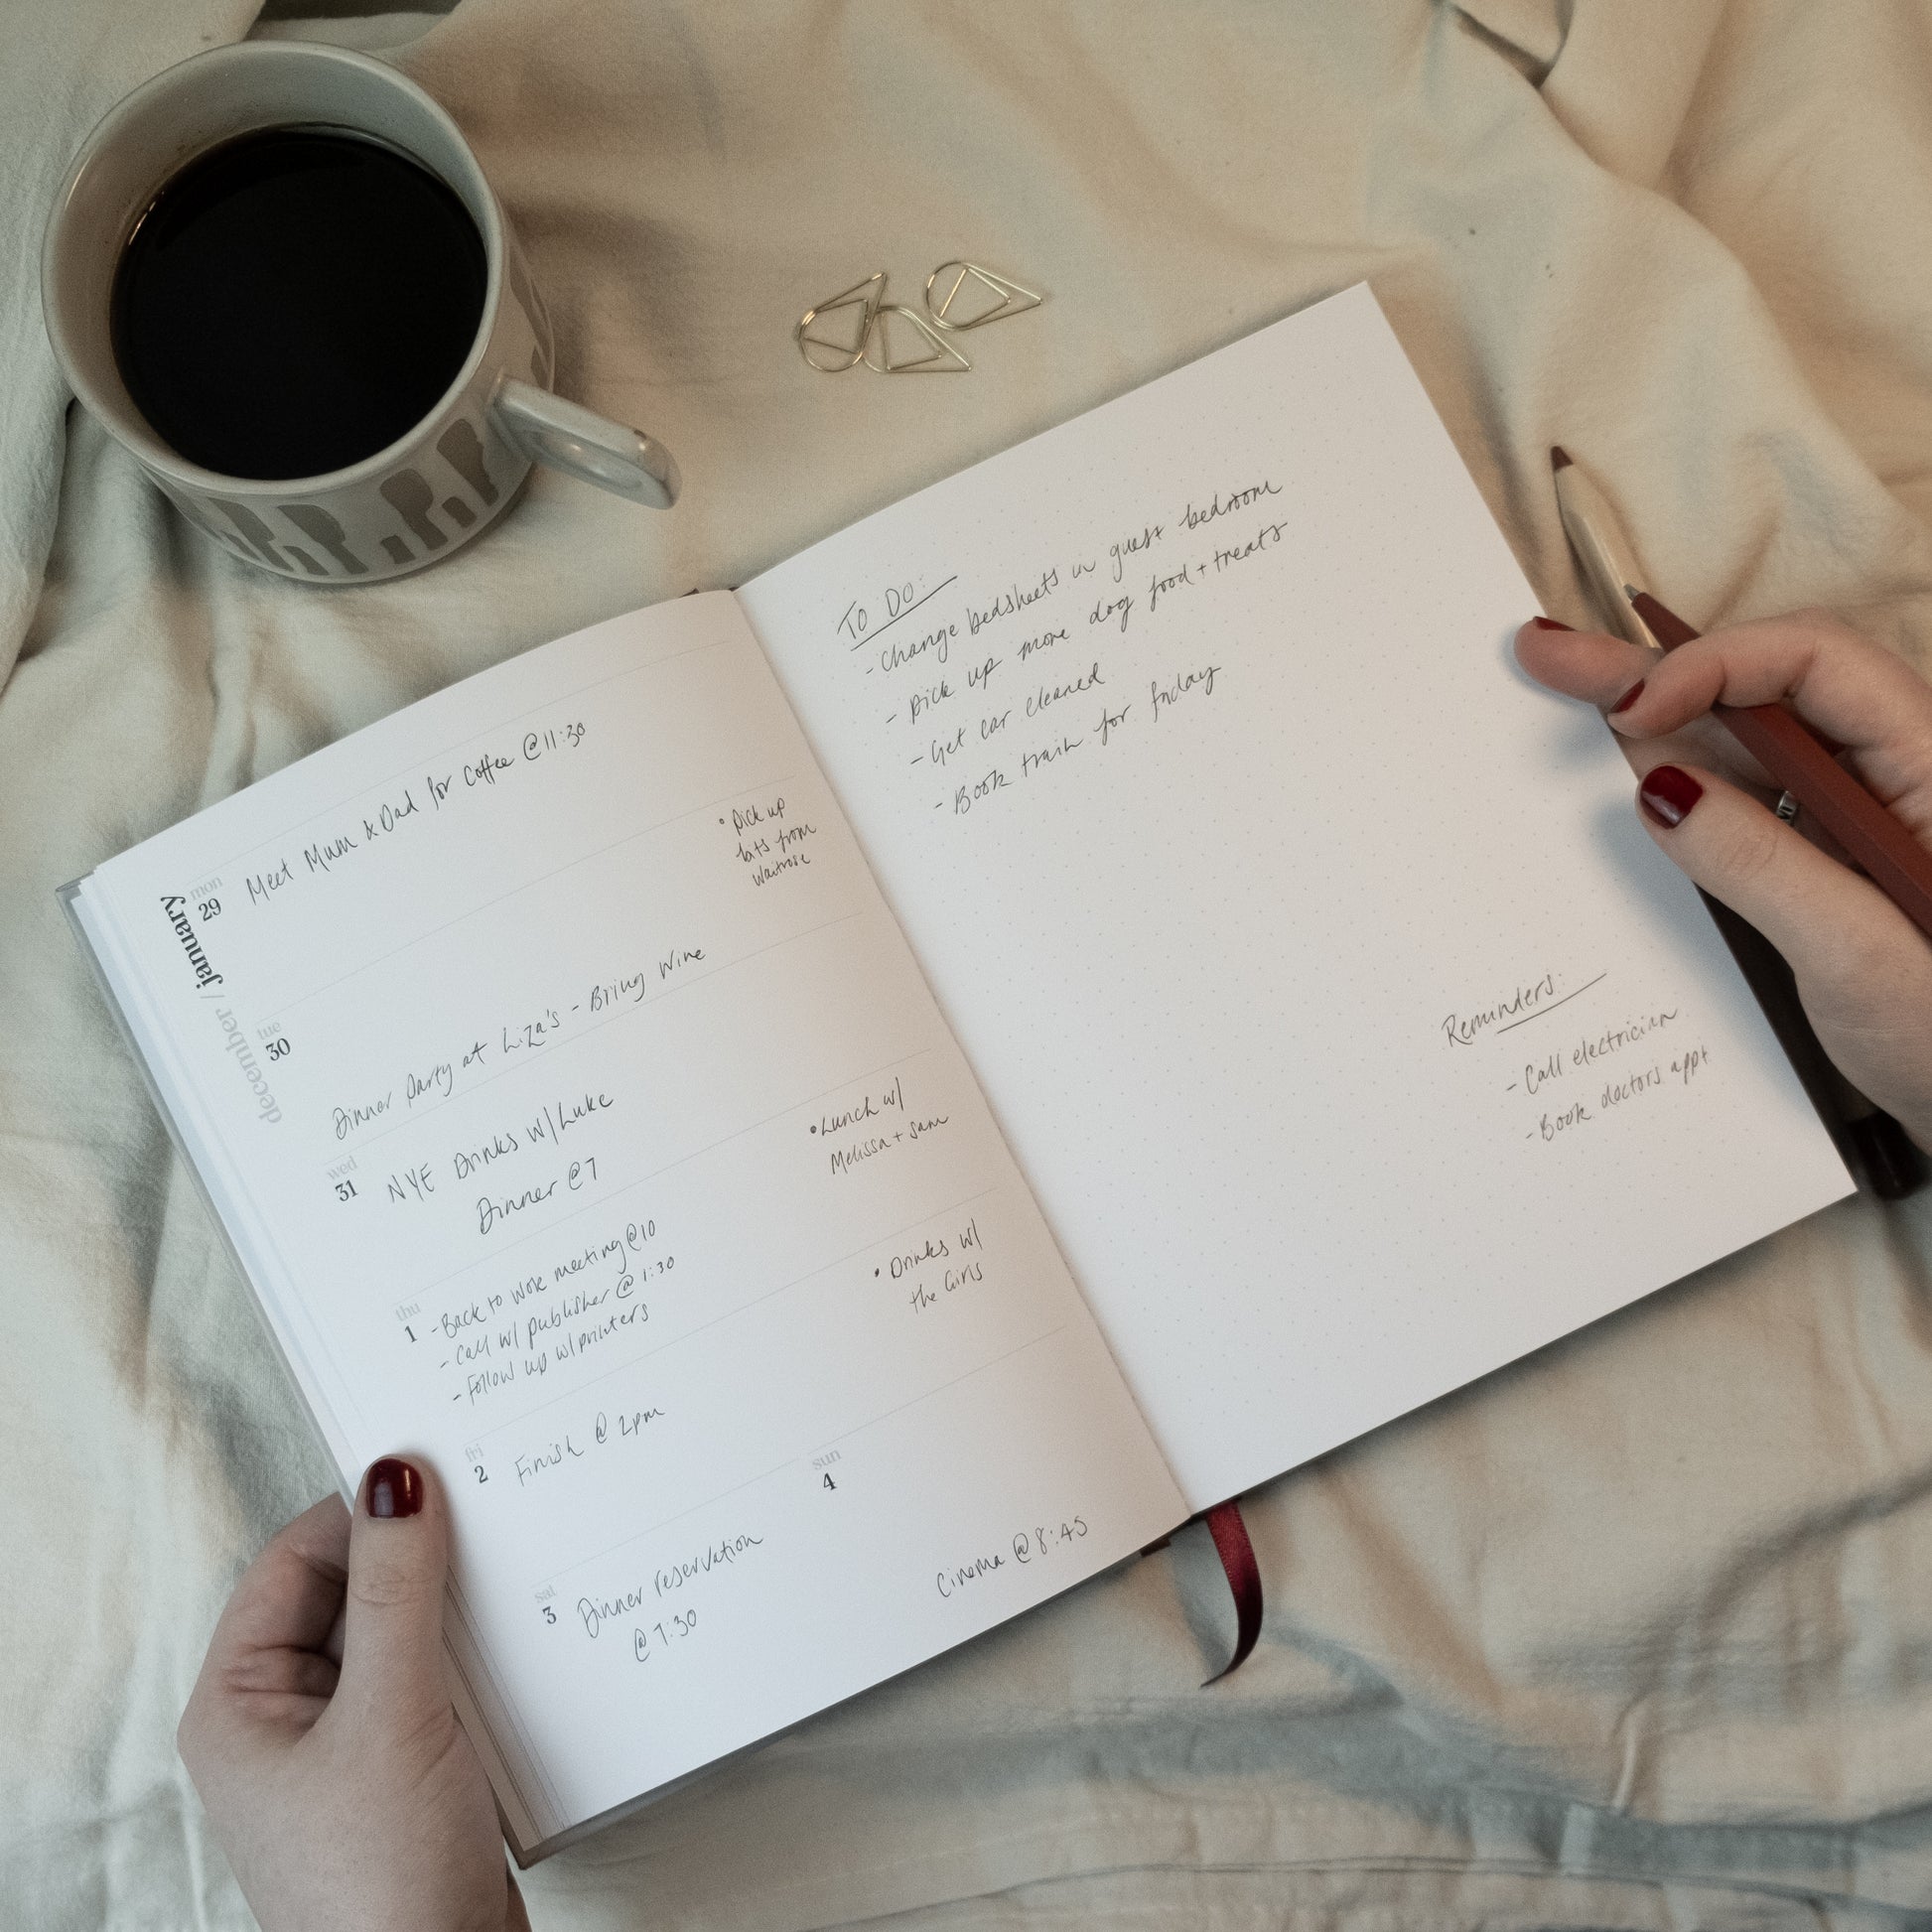 december / january
mon
29
Meet Mum & Dad for coffee @ 11:30
tue
30
• Pick up
bits from
Waitrose
Dinner Party at Liza's - Bring Wine
wed
31
NYE Drinks w/ Luke
Dinner @ 7
thu
1
- Back to work meeting @ 10
- Call w/ publisher @ 1:30
- Follow up w/ printers
• Lunch w/
Melissa + Sam
fri
2
Finish @ 2pm
• Drinks w/
the Girls
sat
3
Dinner reservation
@ 7:30
sun
4
Cinema @ 8:45
TO DO:
- Change bedsheets in guest bedroom
- Pick up more dog food + treats
- Get car cleaned
- Book train for friday
Reminders:
- Call electrician
- Book doctors appt